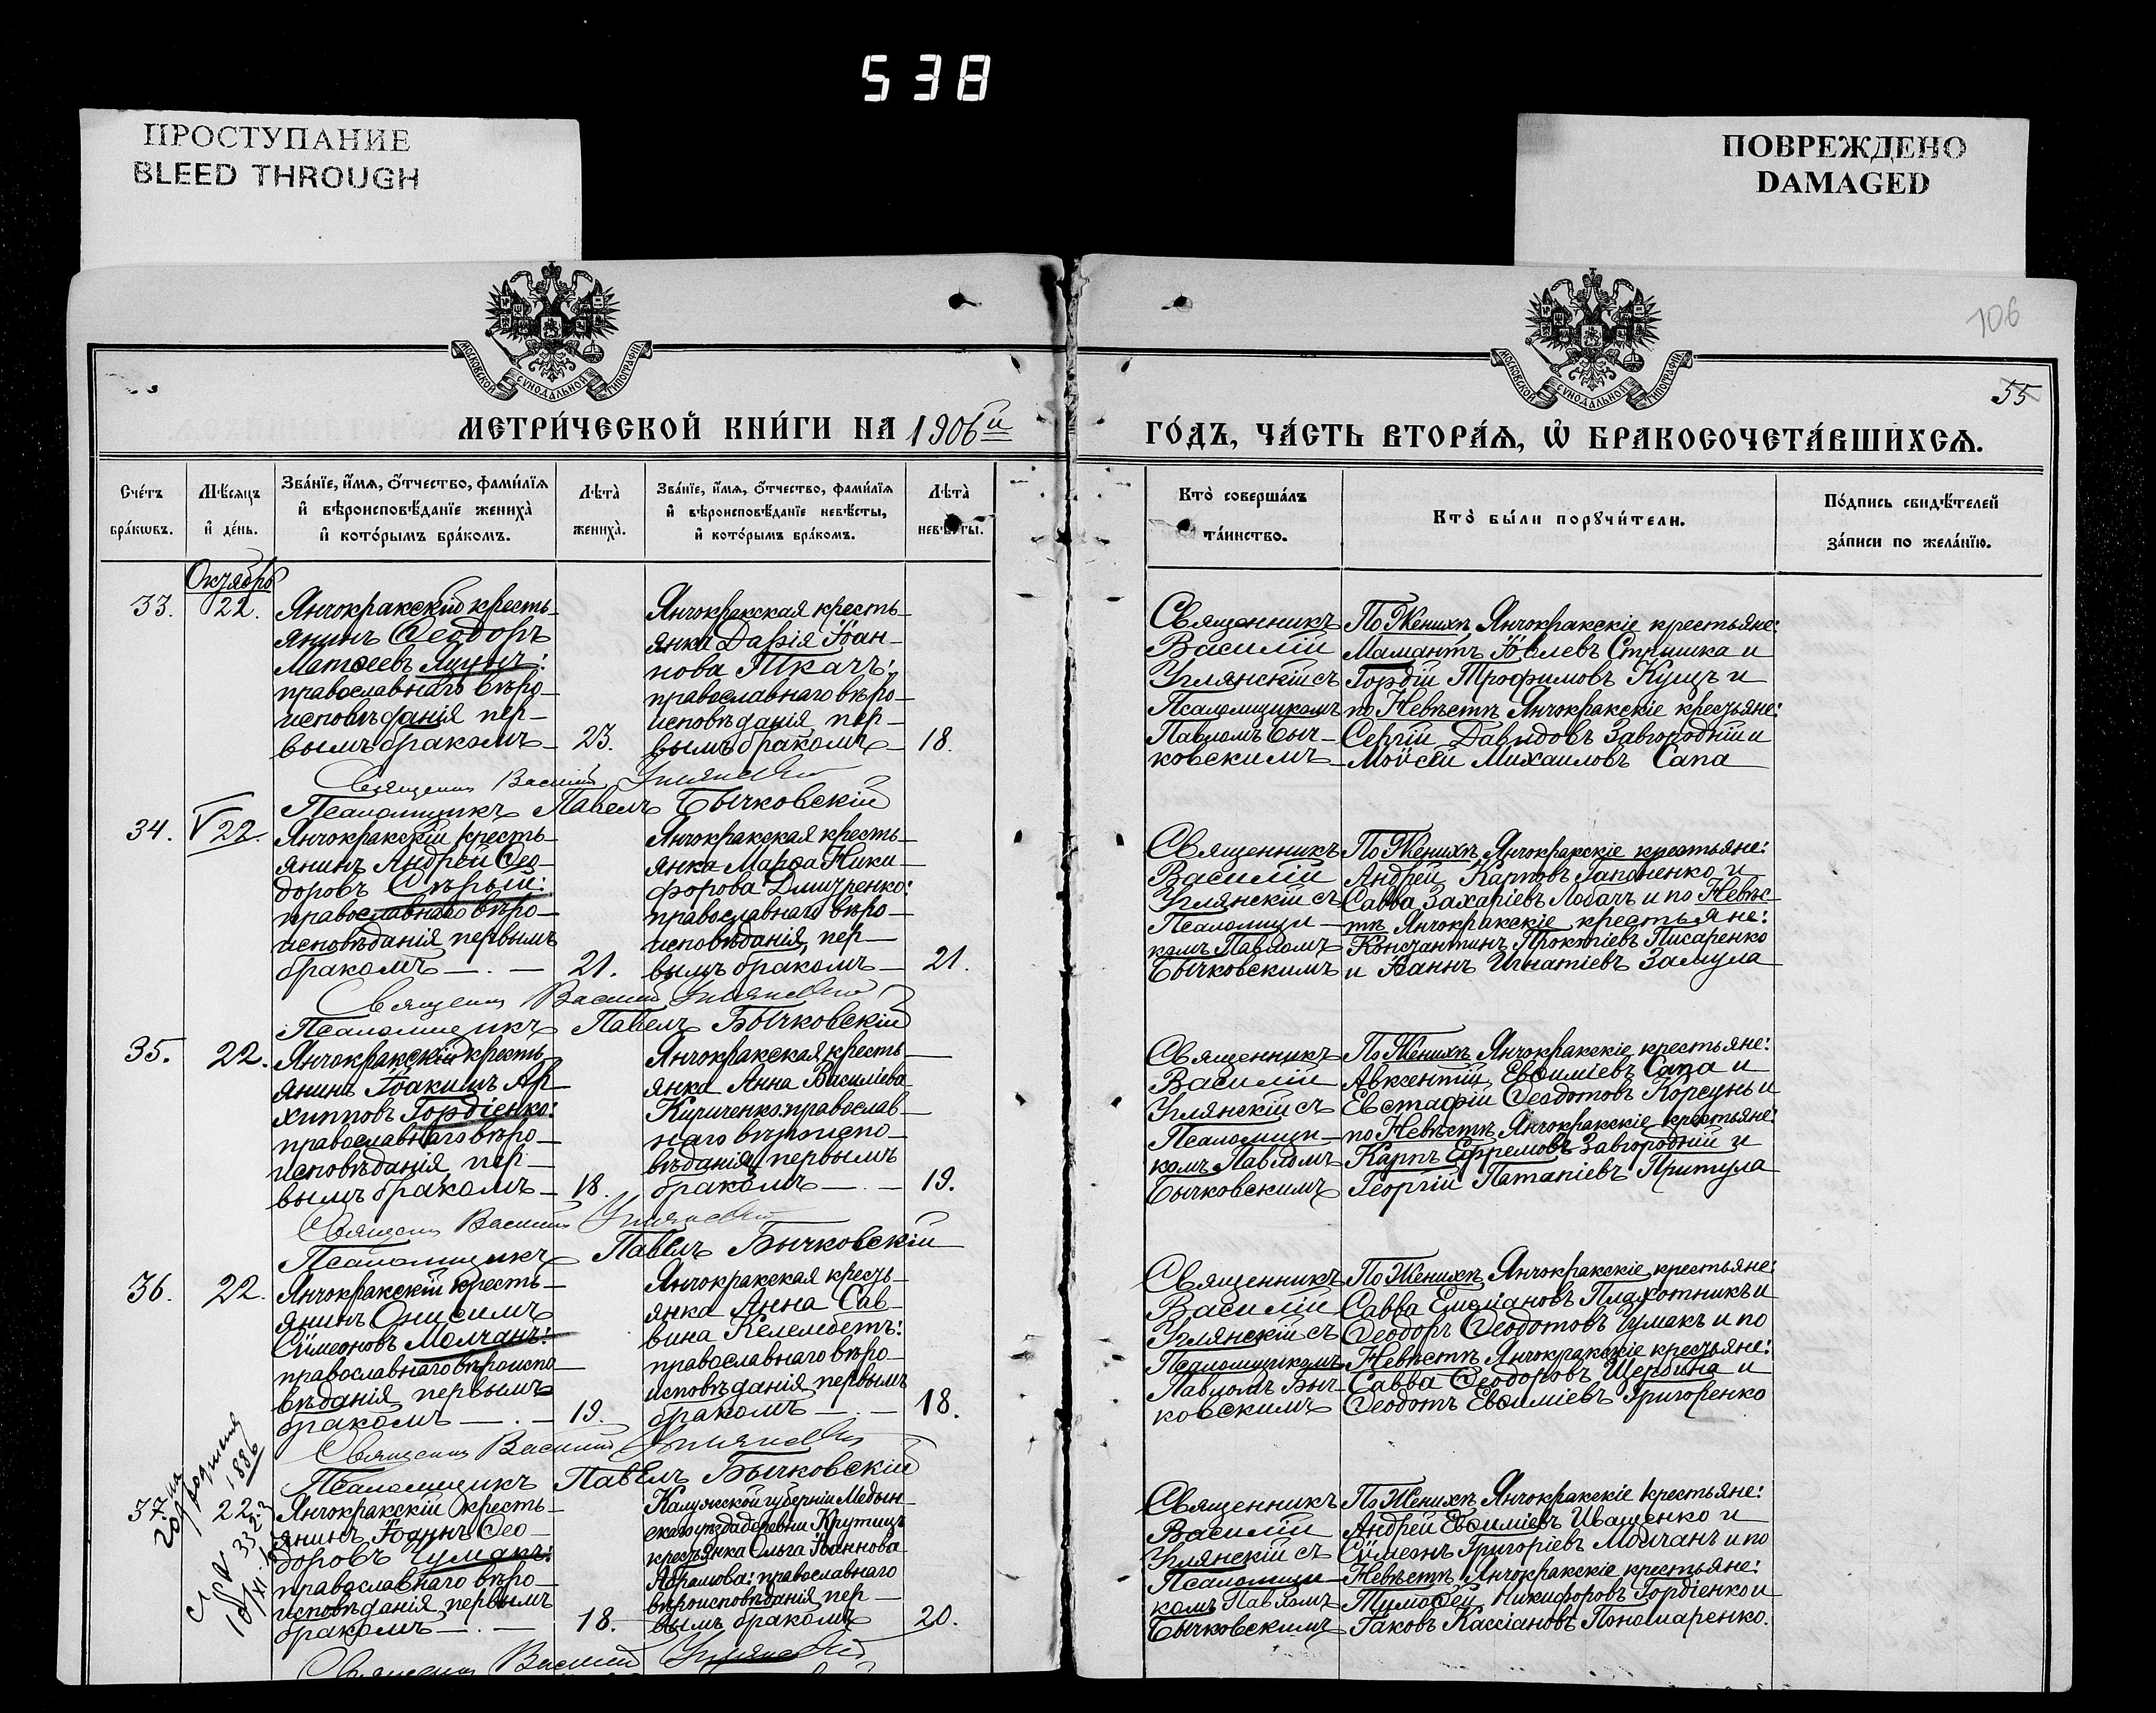 538
ПРОСТУПАНИЕ
BLEED THROUGH
ПОВРЕЖДЕНО
DAMAGED
106
55
МОСКОВСКОЙ СУНОДАЛЬНОЙ ТИПОГРАФІИ
МОСКОВСКОЙ СУНОДАЛЬНОЙ ТИПОГРАФІИ
МЕТРИ́ЧЕСКОЙ КНИ́ГИ НА 1906й
ГО́ДЪ, ЧА́СТЬ ВТОРА́Ѧ, Ѡ҆ БРАКОСОЧЕТА́ВШИХСѦ.
Сче́тъ
бра́кѡвъ.
Мѣ́сяцъ
и҆ де́нь.
Зва́нїе, и҆́мѧ, ѻ҆́тчество, фами́лїѧ
и҆ вѣроисповѣ́данїе жениха̀
и҆ кото́рымъ бра́комъ.
Лѣта̀
жениха̀.
Зва́нїе, и҆́мѧ, ѻ҆́тчество, фами́лїѧ
и҆ вѣроисповѣ́данїе невѣ́сты,
и҆ кото́рымъ бра́комъ.
Лѣта̀
невѣ́сты.
Кто̀ соверша́лъ
та́инство.
Кто̀ бы́ли порꙋчи́тели.
По́дпись свидѣ́телей
за́писи по жела́нїю.
Октябрь
33.
22.
Янчокракскій кресть-
янинъ Ѳеодоръ
Матѳеевъ Яцунъ:
православнаго вѣро-
исповѣданія пер-
вымъ бракомъ
23.
Янчокракская кресть-
янка Дарія Іоан-
нова Ткачъ:
православнаго вѣро-
исповѣданія пер-
вымъ бракомъ
18.
Священникъ
Василій
Углянскій съ
Псаломщикомъ
Павломъ Быч-
ковскимъ
По Женихѣ Янчокракскіе крестьяне:
Мамантъ Іовлевъ Стришка и
Гордій Трофимовъ Куцъ и
по Невѣстѣ Янчокракскіе крестьяне:
Сергій Давидовъ Завгородній и
Моѵсей Михаиловъ Сапа
Священникъ Василій Углянскій
Псаломщикъ Павелъ Бычковскій
34.
22.
Янчокракскій кресть-
янинъ Андрей Ѳео-
доровъ Сѣрый:
православнаго вѣро-
исповѣданія первымъ
бракомъ
21.
Янчокракская кресть-
янка Марѳа Ники-
форова Дмитренко:
православнаго вѣро-
исповѣданія пер-
вымъ бракомъ
21.
Священникъ
Василій
Углянскій съ
Псаломщи-
комъ Павломъ
Бычковскимъ
По Женихѣ Янчокракскіе крестьяне:
Андрей Карповъ Гапоненко и
Савва Захаріевъ Лобачъ и по Невѣс-
тѣ Янчокракскіе крестьяне:
Константинъ Прокпіевъ Писаренко
и Іоаннъ Игнатіевъ Замула
Священникъ Василій Углянскій
Псаломщикъ Павелъ Бычковскій
35.
22.
Янчокракскій кресть-
янинъ Іоакимъ Ар-
хипповъ Гордіенко:
православнаго вѣро-
исповѣданія пер-
вымъ бракомъ
18.
Янчокракская кресть-
янка Анна Василіева
Кириченко: православ-
наго вѣроиспо-
вѣданія первымъ
бракомъ
19.
Священникъ
Василій
Углянскій съ
Псаломщи-
комъ Павломъ
Бычковскимъ
По Женихѣ Янчокракскіе крестьяне:
Авксентій Евѳиміевъ Сапа и
Евстафій Ѳеодотовъ Корсунь и
по Невѣстѣ Янчокракскіе крестьяне:
Карпъ Ефремовъ Завгородній и
Георгій Патапіевъ Притула
Священникъ Василій Углянскій
Псаломщикъ Павелъ Бычковскій
36.
22.
Янчокракскій кресть-
янинъ Онисимъ
Сѵмеоновъ Молчанъ:
православнаго вѣроиспо-
вѣданія первымъ
бракомъ
19.
Янчокракская кресть-
янка Анна Сав-
вина Келембетъ:
православнаго вѣро-
исповѣданія первымъ
бракомъ
18.
Священникъ
Василій
Углянскій съ
Псаломщикомъ
Павломъ Быч-
ковскимъ
По Женихѣ Янчокракскіе крестьяне:
Савва Емиліановъ Плахотникъ и
Ѳеодоръ Ѳеодотовъ Чумакъ и по
Невѣстѣ Янчокракскіе крестьяне:
Савва Ѳеодоровъ Щербина и
Ѳеодотъ Евѳиміевъ Григоренко
Священникъ Василій Углянскій
Псаломщикъ Павелъ Бычковскій
37.
22.
год рождения
1886
Янчокракскій кресть-
янинъ Іодинъ Ѳео-
доровъ Чумакъ:
православнаго вѣро-
исповѣданія первымъ
бракомъ
18.
Калужской губерніи Медын-
скаго уѣзда деревни Крутицъ
крестьянка Ольга Іоаннова
Абрамова: православнаго
вѣроисповѣданія пер-
вымъ бракомъ
20.
Священникъ
Василій
Углянскій съ
Псаломщи-
комъ Павломъ
Бычковскимъ
По Женихѣ Янчокракскіе крестьяне:
Андрей Евѳиміевъ Иващенко и
Сѵмеонъ Григоріевъ Молчанъ и по
Невѣстѣ Янчокракскіе крестьяне:
Тимоѳей Никифоровъ Гордіенко и
Іаковъ Кассіановъ Пономаренко.
Священникъ Василій Углянскій